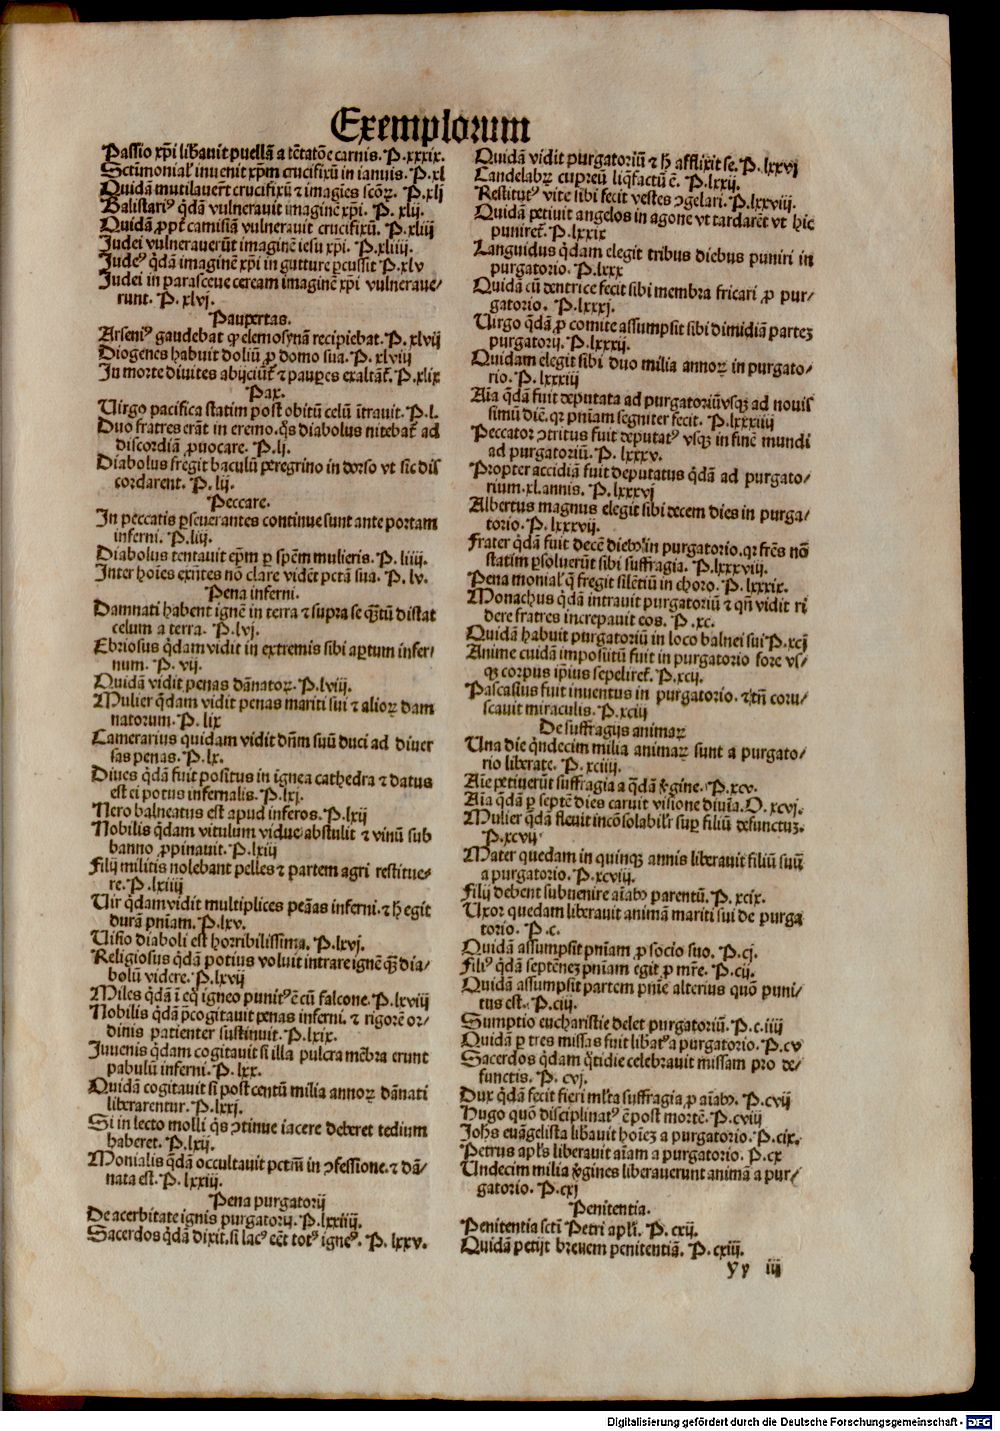 Exemplorum
Passio xp̄i lib̄auit puellā a tētatōe carnis. P. xxxix.
Sctimonial' inuenit xp̄m crucifixū in ianuis. P. xl
Quidā mutilauer̄t crucifixū ⁊ imagīes scōꝝ. P. xlj
Balistariꝰ q̇dā vulnerauit imaginē xp̄i. P. xlij.
Quidā ꝓpt̄ camisiā vulnerauit crucifixū. P. xliij
Judei vulnerauerūt imaginē iesu xp̄i. P. xliiij.
Judeꝰ q̇dā imaginē xp̄i in gutture ꝑcussit P. xlv
Judei in parasceue ceream imaginē xp̄i vulneraue/
runt. P. xlvj.
Paupertas.
Arseniꝰ gaudebat ꝙ elemosynā recipiebat. P. xlvij
Diogenes habuit doliū ꝓ domo sua. P. xlviij
In morte diuites abijciūt᷑ ⁊ pauꝑes exaltāt᷑. P. xlix
Pax.
Uirgo pacifica statim post obitū celū ītrauit. P. l.
Duo fratres erāt in eremo. q̇s diabolus nitebat᷑ ad
discordiā ꝓuocare. P. lj.
Diabolus fregit baculū peregrino in dorso vt sic dis
cordarent. P. lij.
Peccare.
In peccatis ꝑseuerantes continue sunt ante portam
inferni. P. liij.
Diabolus tentauit ep̄m ꝑ spēm mulieris. P. liiij.
Inter hoīes exn̄tes nō clare vidēt pctā sua. P. lv.
Pena inferni.
Damnati habent ignē in terra ⁊ supra se q̄ȝtū distat
celum a terra. P. lvj.
Ebriosus q̇dam vidit in extremis sibi aꝑtum infer/
num. P. vij.
Quidā vidit penas dānatoꝝ. P. lviij.
Mulier q̇dam vidit penas mariti sui ⁊ alioꝝ dam
natorum. P. lix
Camerarius quidam vidit dn̄m suū duci ad diuer
sas penas. P. lx.
Diues q̇dā fuit positus in ignea cathedra ⁊ datus
est ei potus infernalis. P. lxj.
Nero balneatus est apud inferos. P. lxij
Nobilis q̇dam vitulum vidue abstulit ⁊ vinū sub
banno ꝓpinauit. P. lxiij
Filij militis nolebant pelles ⁊ partem agri restitue/
re. P. lxiiij
Uir q̇dam vidit multiplices peās inferni. ⁊ h̄ egit
durā pn̄iam. P. lxv.
Uisio diaboli est horribilissima. P. lxvj.
Religiosus q̇dā potius voluit intrare ignē q̄ȝ dia/
bolū videre. P. lxvij
Miles q̇dā ī eq̇ igneo punitꝰ ē cū falcone. P. lxviij
Nobilis q̇dā p̄cogitauit penas inferni. ⁊ rigorē or/
dinis patienter sustinuit. P. lxix.
Juuenis q̇dam cogitauit si illa pulcra mēbra erunt
pabulū inferni. P. lxx.
Quidā cogitauit si post centū milia annoꝝ dānati
liberarentur. P. lxxj.
Si in lecto molli q̇s ↄtinue iacere deberet tedium
haberet. P. lxij.
Monialis q̇dā occultauit pctm̄ in ↄfessione. ⁊ dā/
nata est. P. lxxiij.
Pena purgatorij
De acerbitate ignis purgatorij. P. lxxiiij.
Sacerdos q̇dā dixit. si lacꝰ eēt totꝰ igneꝰ. P. lxxv.
Quidā vidit purgatoriū ⁊ h̄ afflixit se. P. lxxvj
Candelabꝝ cupreū liq̄factū ē. P. lxxij.
Restitutꝰ vite sibi fecit vestes ↄgelari. P. lxxviij.
Quidā petiuit angelos in agone vt tardarēt vt hic
puniret᷑. P. lxxix
Languidus q̇dam elegit tribus diebus puniri in
purgatorio. P. lxxx
Quidā cū dentrice fecit sibi membra fricari ꝓ pur/
gatorio. P. lxxxj.
Uirgo q̇dā ꝓ comite assumpsit sibi dimidiā parteȝ
purgatorij. P. lxxxij.
Quidam elegit sibi duo milia annoꝝ in purgato/
rio. P. lxxxiij
Aīa q̇dā fuit deputata ad purgatoriū vsqȝ ad nouis
simū diē. qꝛ pn̄iam segniter fecit. P. lxxxiiij
Peccator ↄtritus fuit deputatꝰ vsqȝ in finē mundi
ad purgatoriū. P. lxxxv.
Propter accidiā fuit deputatus q̇dā ad purgato/
rium. xl. annis. P. lxxxvj
Albertus magnus elegit sibi decem dies in purga/
torio. P. lxxxvij.
Frater q̇dā fuit decē diebꝰ in purgatorio. qꝛ fr̄es nō
statim ꝑsoluerūt sibi suffragia. P. lxxxviij.
Pena monial' q̄ fregit silētiū in choro. P. lxxxix.
Monachus q̇dā intrauit purgatoriū ⁊ qn̄ vidit ri
dere fratres increpauit eos. P. xc.
Quidā habuit purgatoriū in loco balnei sui P. xcj
Anime cuidā impositū fuit in purgatorio fore vs/
qȝ corpus ip̄ius sepeliret᷑. P. xcij.
Pascasius fuit inuentus in purgatorio. ⁊ tn̄ coru/
scauit miraculis. P. xciij
De suffragijs animaꝝ
Una die q̇ndecim milia animaꝝ sunt a purgato/
rio liberate. P. xciiij.
Aīe petiuerūt suffragia a q̄dā v̇gine. P. xcv.
Aīa q̇dā ꝑ septē dies caruit visione diuīa. O. xcvj.
Mulier q̇dā fleuit incōsolabilr̄ suꝑ filiū defunctuȝ.
P. xcvij
Mater quedam in quinqȝ annis liberauit filiū suū
a purgatorio. P. xcviij.
Filij debent subuenire aīabꝰ parentū. P. xcix.
Uxor quedam liberauit animā mariti sui de purga
torio. P. c.
Quidā assumpsit pn̄iam ꝓ socio suo. P. cj.
Filiꝰ q̇dā septēneȝ pn̄iam egit ꝓ mr̄e. P. cij.
Quidā assumpsit partem pn̄ie alterius quō puni/
tus est. P. ciij.
Sumptio eucharistie delet purgatoriū. P. c. iiij
Quidā ꝑ tres missas fuit lib̄atꝰ a purgatorio. P. cv
Sacerdos q̇dam q̇tidie celebrauit missam pro de/
functis. P. cvj.
Dux q̇dā fecit fieri ml̄ta suffragia ꝓ aīabꝰ. P. cvij
Hugo quō disciplinatꝰ ē post mortē. P. cviij
Joh̄s euāgelista lib̄auit hoīeȝ a purgatorio. P. cix.
Petrus apl̄s liberauit aīam a purgatorio. P. cx
Undecim milia v̇gines liberauerunt animā a pur/
gatorio. P. cxj
Penitentia.
Penitentia scti Petri apl̄i. P. cxij.
Quidā petijt breuem penitentiā. P. cxiij.
yy iij
Digitalisierung gefördert durch die Deutsche Forschungsgemeinschaft - DFG